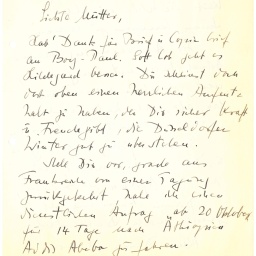 Liebste Mutter,
hab' Dank für Brief u. Copie brief
an Borg-Pauk. Gott Lob geht es
Hildegard besser. Du scheinst doch
dort oben einen herrlichen Aufent-
halt zu haben, der Dir sicher Kraft
u. Freude gibt, die Düsseldorfer
Winter gut zu überstehen.
Stell Dir vor, grade aus
Frankreich von einer Tagung
zurückgekehrt, habe ich einen
Auftrag "ab 20 Oktober
für 14 Tage nach Äthiopien
Addis Abeba zu fahren.